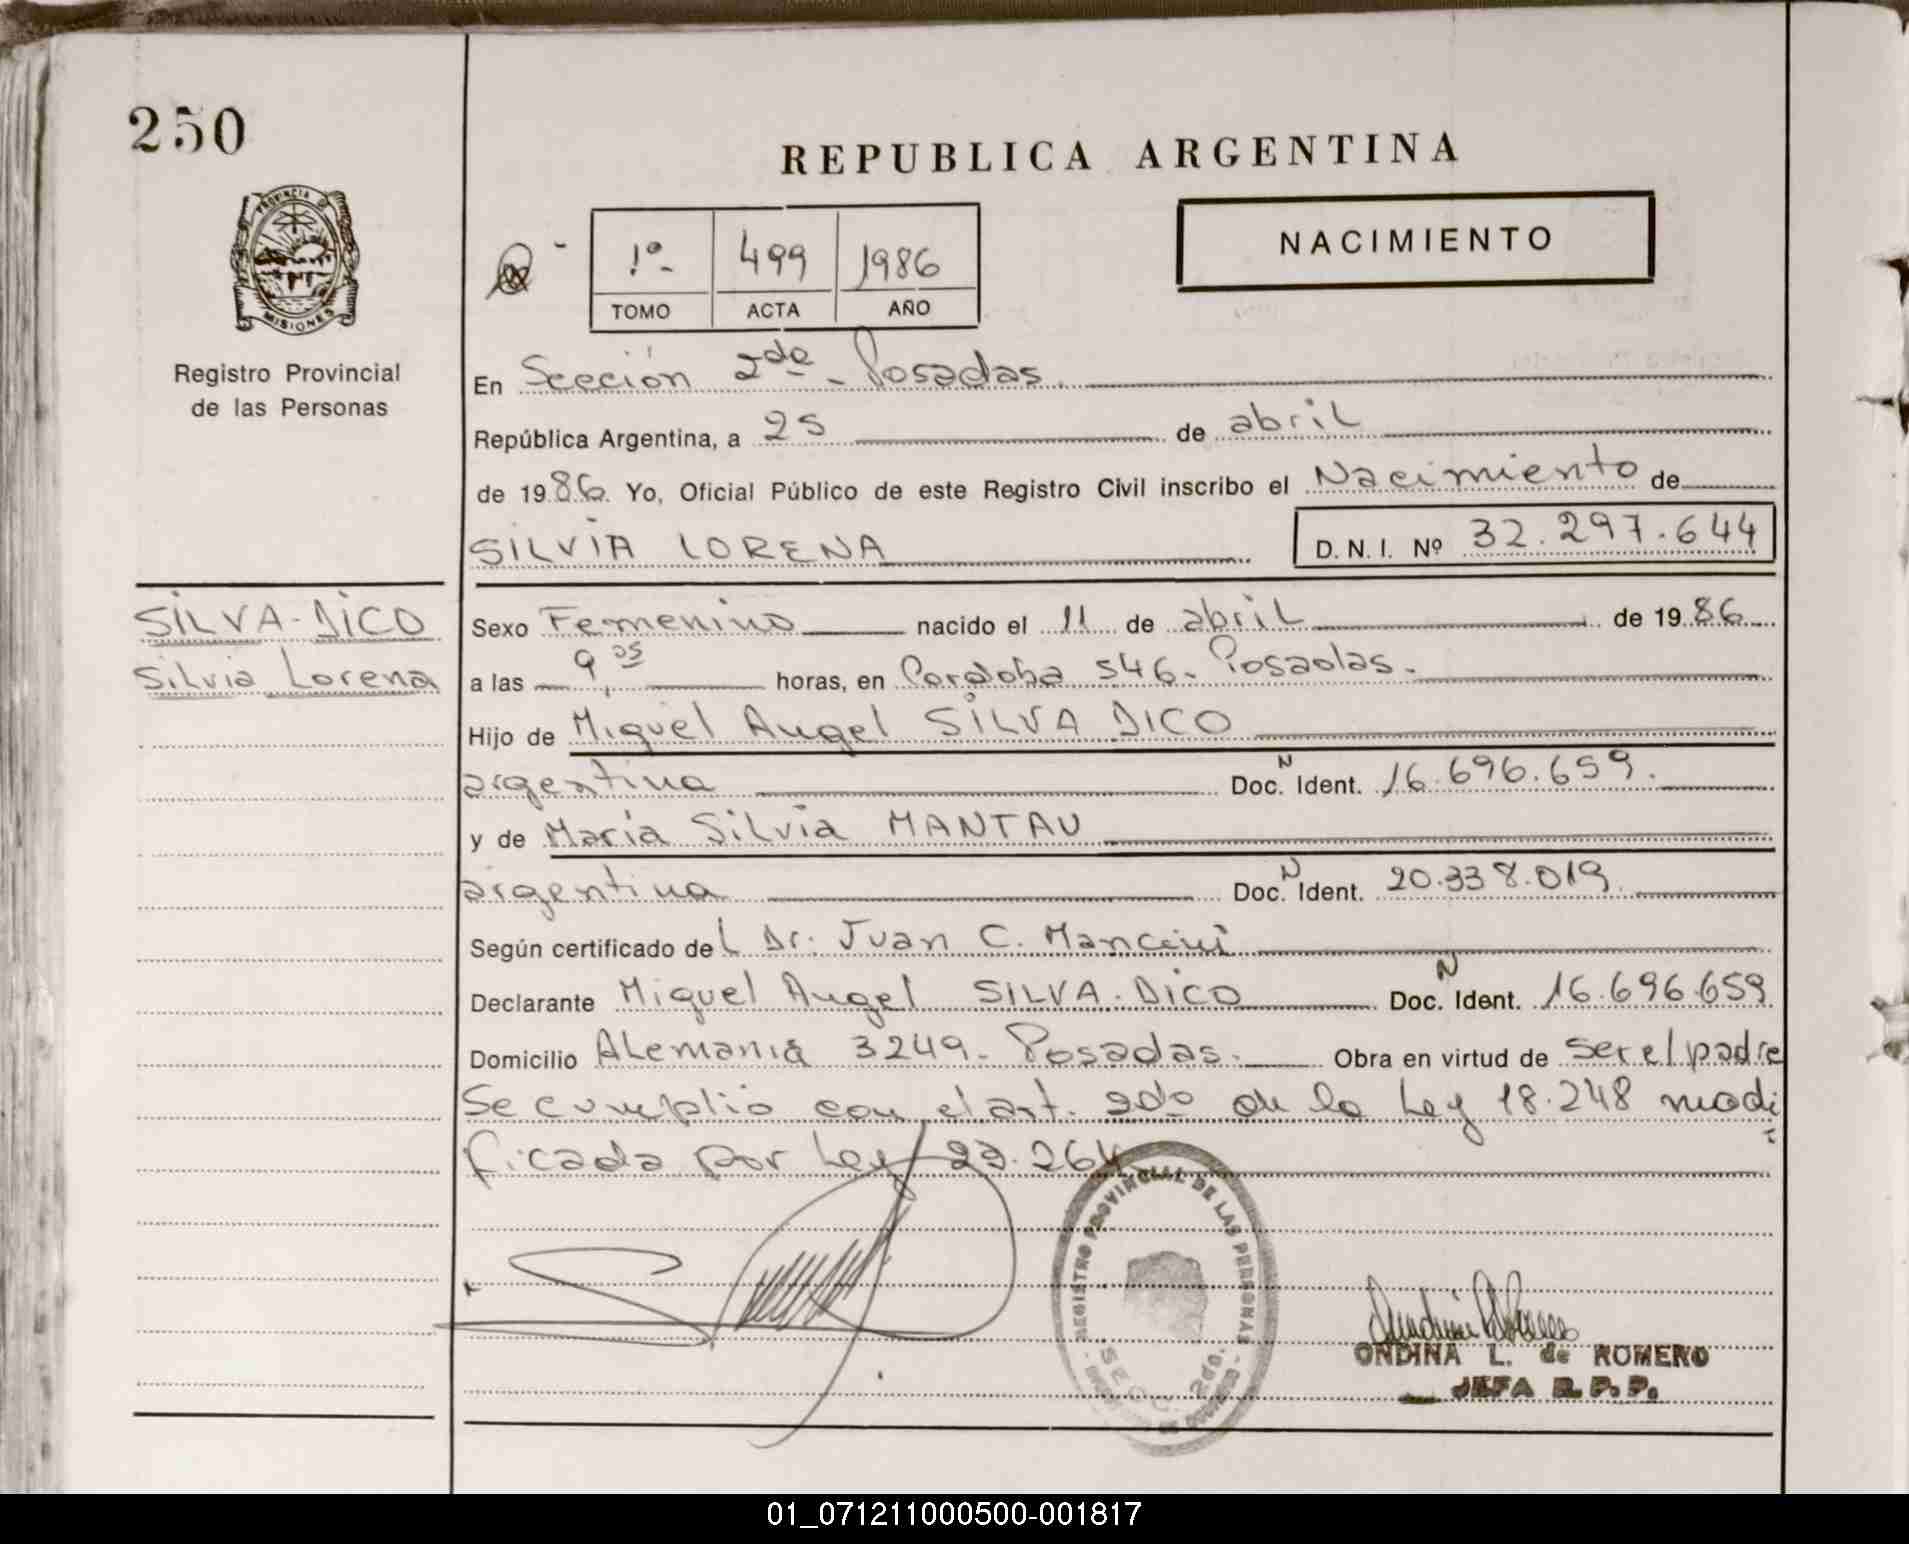 250
REPUBLICA ARGENTINA
PROVINCIA DE
MISIONES
Registro Provincial
de las Personas
1º- 499 1986
TOMO ACTA AÑO
NACIMIENTO
En Sección 2da - Posadas.
República Argentina, a 25 de abril
de 1986. Yo, Oficial Público de este Registro Civil inscribo el Nacimiento de
SILVIA LORENA D. N. I. Nº 32.297.644
SILVA-DICO
Silvia Lorena
Sexo Femenino nacido el 11 de abril de 1986
a las 9,05 horas, en Cordoba 546- Posadas.
Hijo de Miguel Angel SILVA DICO
argentina Doc. N Ident. 16.696.659.
y de María Silvia MANTAU
argentina Doc. N Ident. 20.338.019
Según certificado del Dr. Juan C. Mancini
Declarante Miguel Angel SILVA-DICO Doc. N Ident. 16.696.659
Domicilio Alemania 3249- Posadas. Obra en virtud de ser el padre
Se cumplio con el art. 2do de la Ley 18.248 modi
ficada por Ley 23.264
REGISTRO PROVINCIAL DE LAS PERSONAS
SECC. 2da.
ONDINA L. de ROMERO
JEFA R. P. P.
01_071211000500-001817